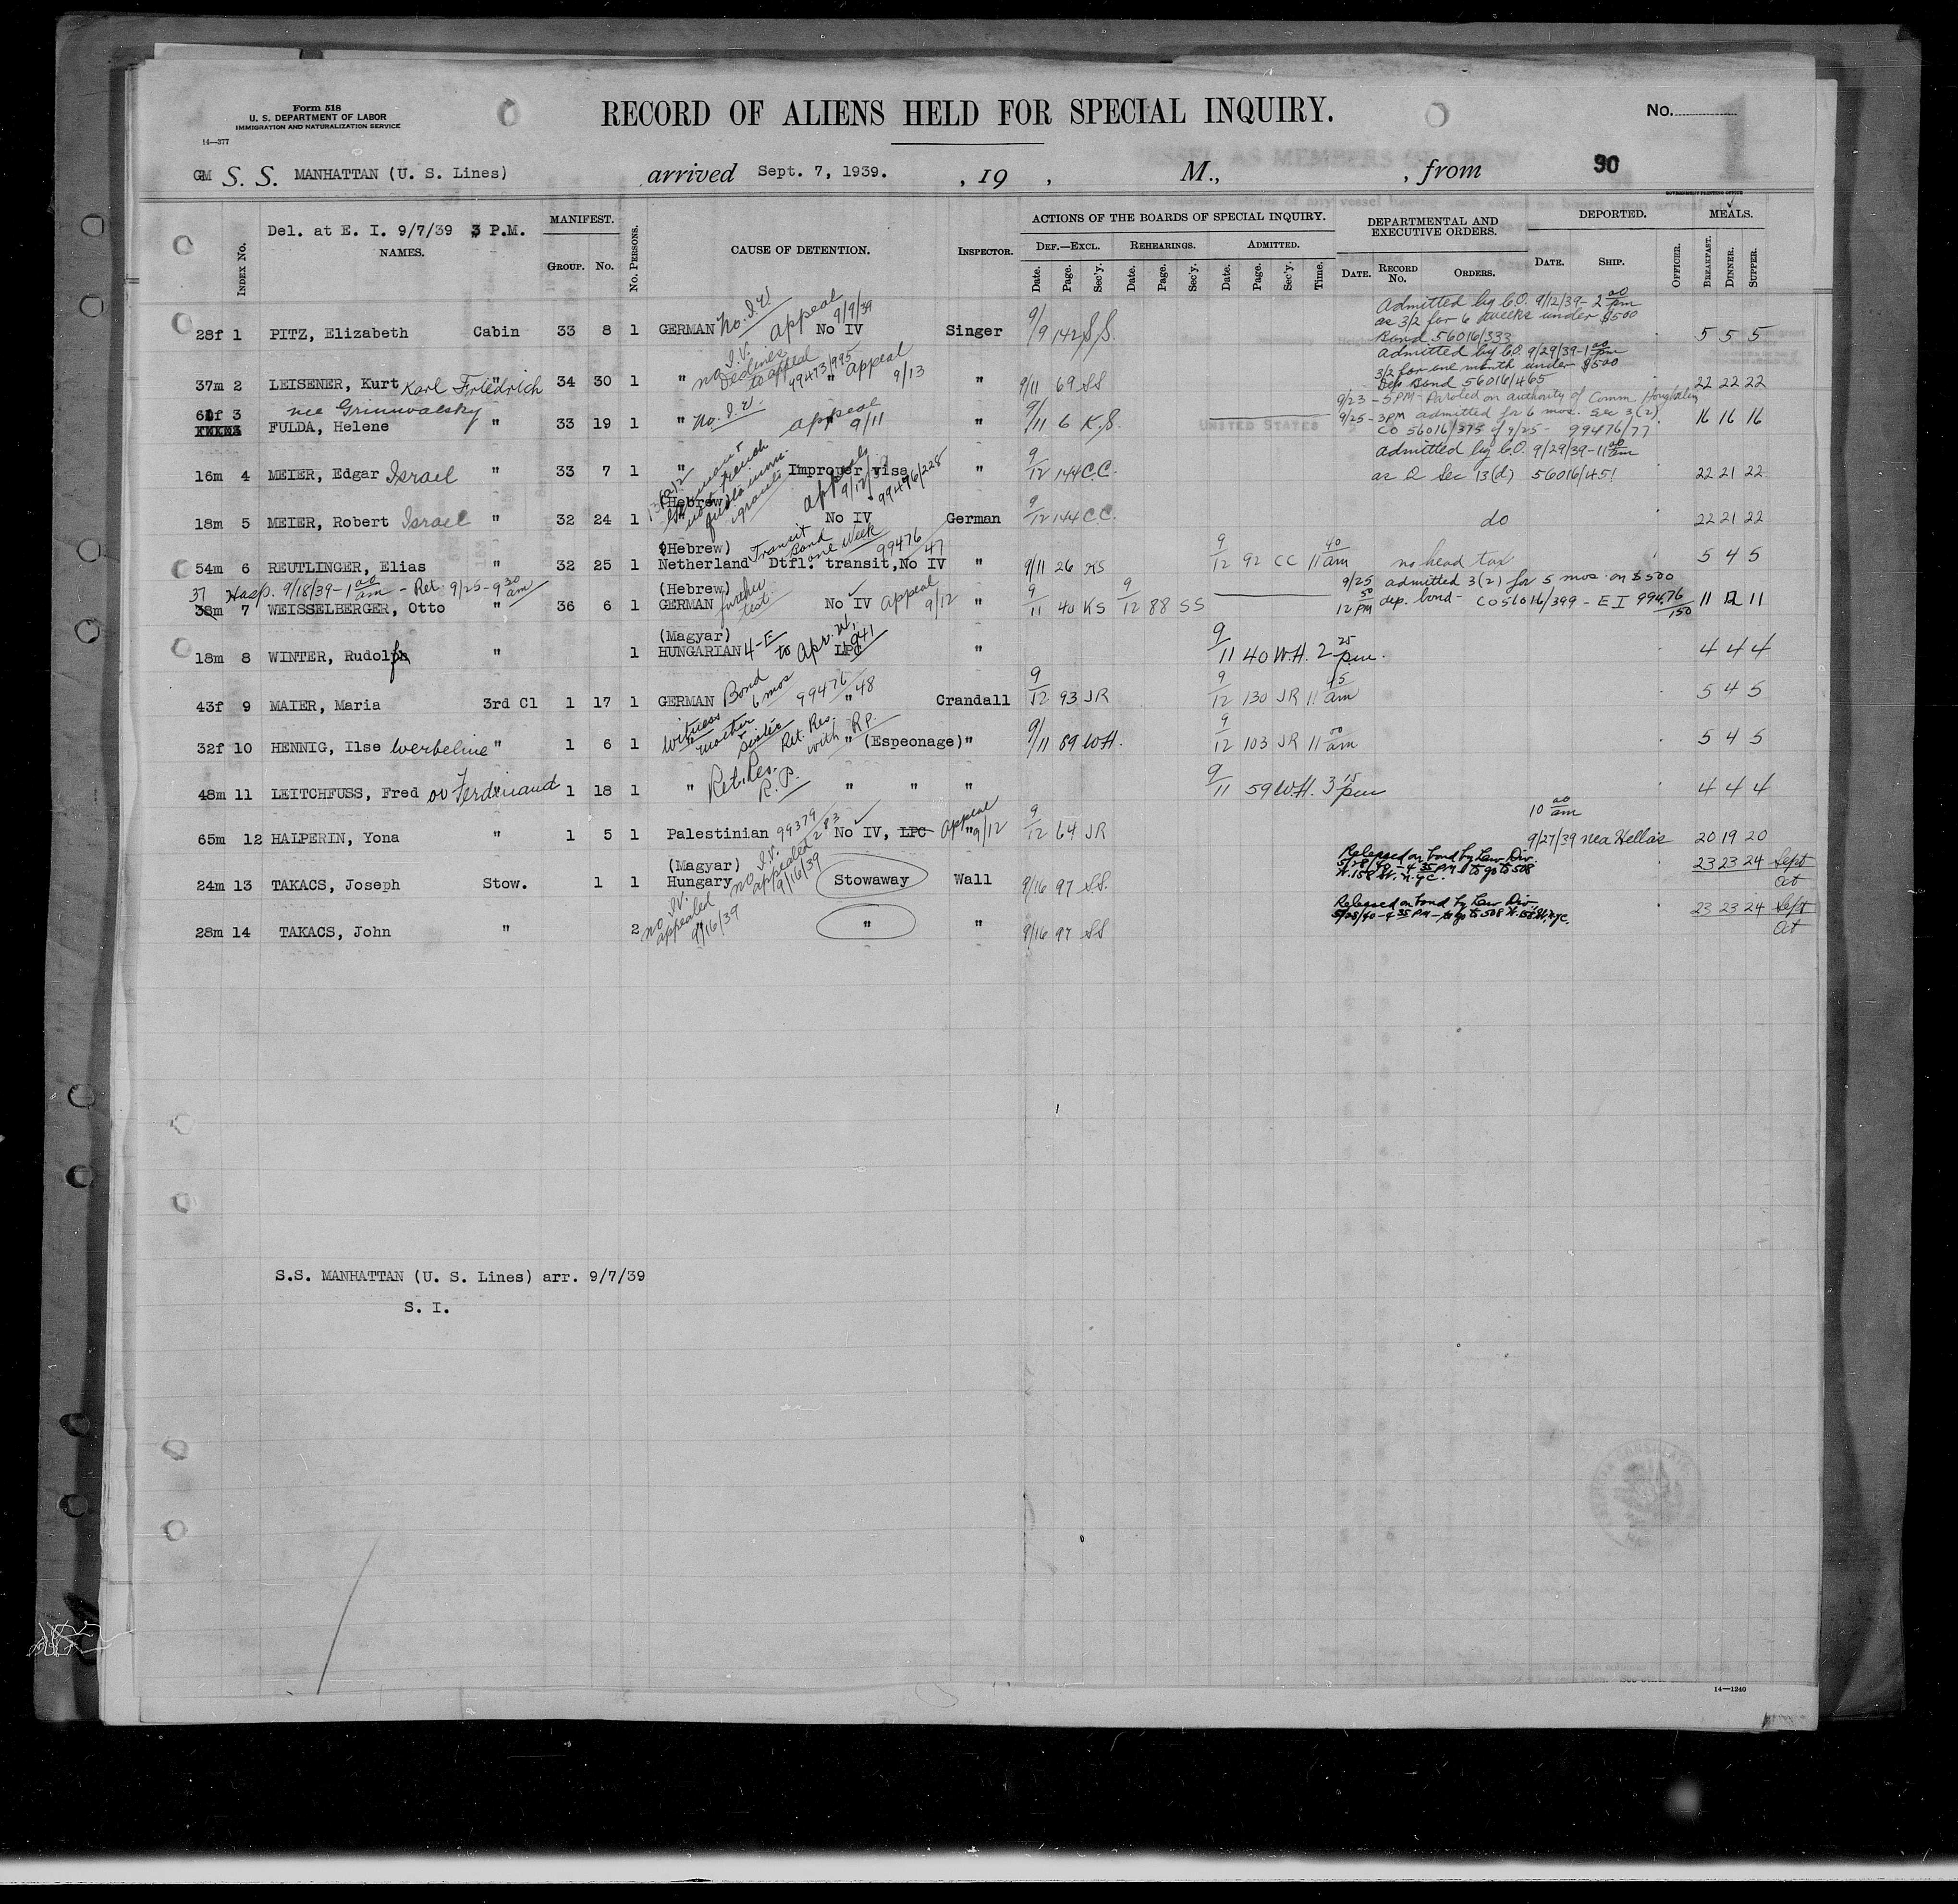 Form 518
U. S. DEPARTMENT OF LABOR
IMMIGRATION AND NATURALIZATION SERVICE
14—377
RECORD OF ALIENS HELD FOR SPECIAL INQUIRY.
No.
1
GM S. S. MANHATTAN (U. S. Lines) arrived Sept. 7, 1939. , 19 , M., , from 30
GOVERNMENT PRINTING OFFICE
Index No.
Del. at E. I. 9/7/39 3 P.M.
NAMES.
MANIFEST.
Group. No.
No. Persons.
CAUSE OF DETENTION.
Inspector.
ACTIONS OF THE BOARDS OF SPECIAL INQUIRY.
Def.—Excl. Rehearings. Admitted.
Date. Page. Sec'y. Date. Page. Sec'y. Date. Page. Sec'y. Time.
DEPARTMENTAL AND EXECUTIVE ORDERS.
Date. Record No. Orders.
DEPORTED.
Date. Ship.
Officer.
MEALS.
Breakfast. Dinner. Supper.
28f 1 PITZ, Elizabeth Cabin 33 8 1 GERMAN No. I.V. Appeal 9/9/39 No IV Singer 9/9 142 S.S. Admitted by C.O. 9/12/39 - 2 00 pm as 3/2 for 6 weeks under $500 Bond 56016/333 5 5 5
37m 2 LEISENER, Kurt Karl Friedrich " 34 30 1 " no I.V. Declines to appeal 99473/995 " Appeal 9/13 " 9/11 69 SS admitted by C.O. 9/29/39 - 1 00 pm 3/2 for one month under $500 Dep. Bond 56016/465 22 22 22
61f 3 nee Grunwalsky FULDA, Helene " 33 19 1 " No. I.V. appeal 9/11 " 9/11 6 K.S. 9/23 - 5 PM - Paroled on authority of Comm Houghteling 9/25 - 3PM admitted for 6 mos. Sec 3(2) CO 56016/375 of 9/25 - 99476/77 16 16 16
16m 4 MEIER, Edgar Israel " 33 7 1 " Improper visa appeals 9/12/39 99476/228 " 9/12 144 C.C. admitted by C.O. 9/29/39 - 11 00 am as Q Sec 13(d) 56016/451 22 21 22
18m 5 MEIER, Robert Israel " 32 24 1 (Hebrew) No IV German 9/12 144 C.C. do 22 21 22
54m 6 REUTLINGER, Elias " 32 25 1 (Hebrew) Netherland Transit Bond one Week 99476/47 Dtfl. transit, No IV " 9/11 26 KS 9/12 92 CC 11 40 am no head tax 5 4 5
37 Hosp. 9/18/39 - 1 00 am - Ret. 9/25 - 9 30 am
38m 7 WEISSELBERGER, Otto " 36 6 1 (Hebrew) GERMAN further test. No IV Appeal 9/12 " 9/11 40 KS 9/12 88 SS 9/25 12 50 PM admitted 3(2) for 5 mos. on $500 dep. bond - CO 56016/399 - E I 99476/150 11 12 11
18m 8 WINTER, Rudolf " 1 (Magyar) HUNGARIAN 4-E to Apr. 1941 LPC " 9/11 40 W.H. 2 25 pm. 4 4 4
43f 9 MAIER, Maria 3rd Cl 1 17 1 GERMAN Bond 6 mos 99476/48 " Crandall 9/12 93 JR 9/12 130 JR 11 45 am 5 4 5
32f 10 HENNIG, Ilse Werbeline " 1 6 1 witness mother sister Ret. Res. with R.P. " (Espeonage) " 9/11 89 W.H. 9/12 103 JR 11 00 am 5 4 5
48m 11 LEITCHFUSS, Fred or Ferdinand " 1 18 1 " Ret. Res. R.P. " " " 9/11 59 W.H. 3 15 pm 4 4 4
65m 12 HALPERIN, Yona " 1 5 1 Palestinian 99379/283 No IV, LPC Appeal 9/12 " 9/12 64 JR 10 00 am 9/27/39 nea Hellas 20 19 20
24m 13 TAKACS, Joseph Stow. 1 1 (Magyar) Hungary no I.V. appealed 9/16/39 Stowaway Wall 9/16 97 SS. Released on bond by Law Div. 5/28/40 - 4 35 PM - to go to 508 W. 158 St. N.Y.C. 23 23 24 Sept Oct
28m 14 TAKACS, John " 2 " no I.V. appealed 9/16/39 " " 9/16 97 SS Released on bond by Law Div. 5/28/40 - 4 35 PM - to go to 508 W. 158 St., N.Y.C. 23 23 24 Sept Oct
S.S. MANHATTAN (U. S. Lines) arr. 9/7/39
S. I.
14—1240